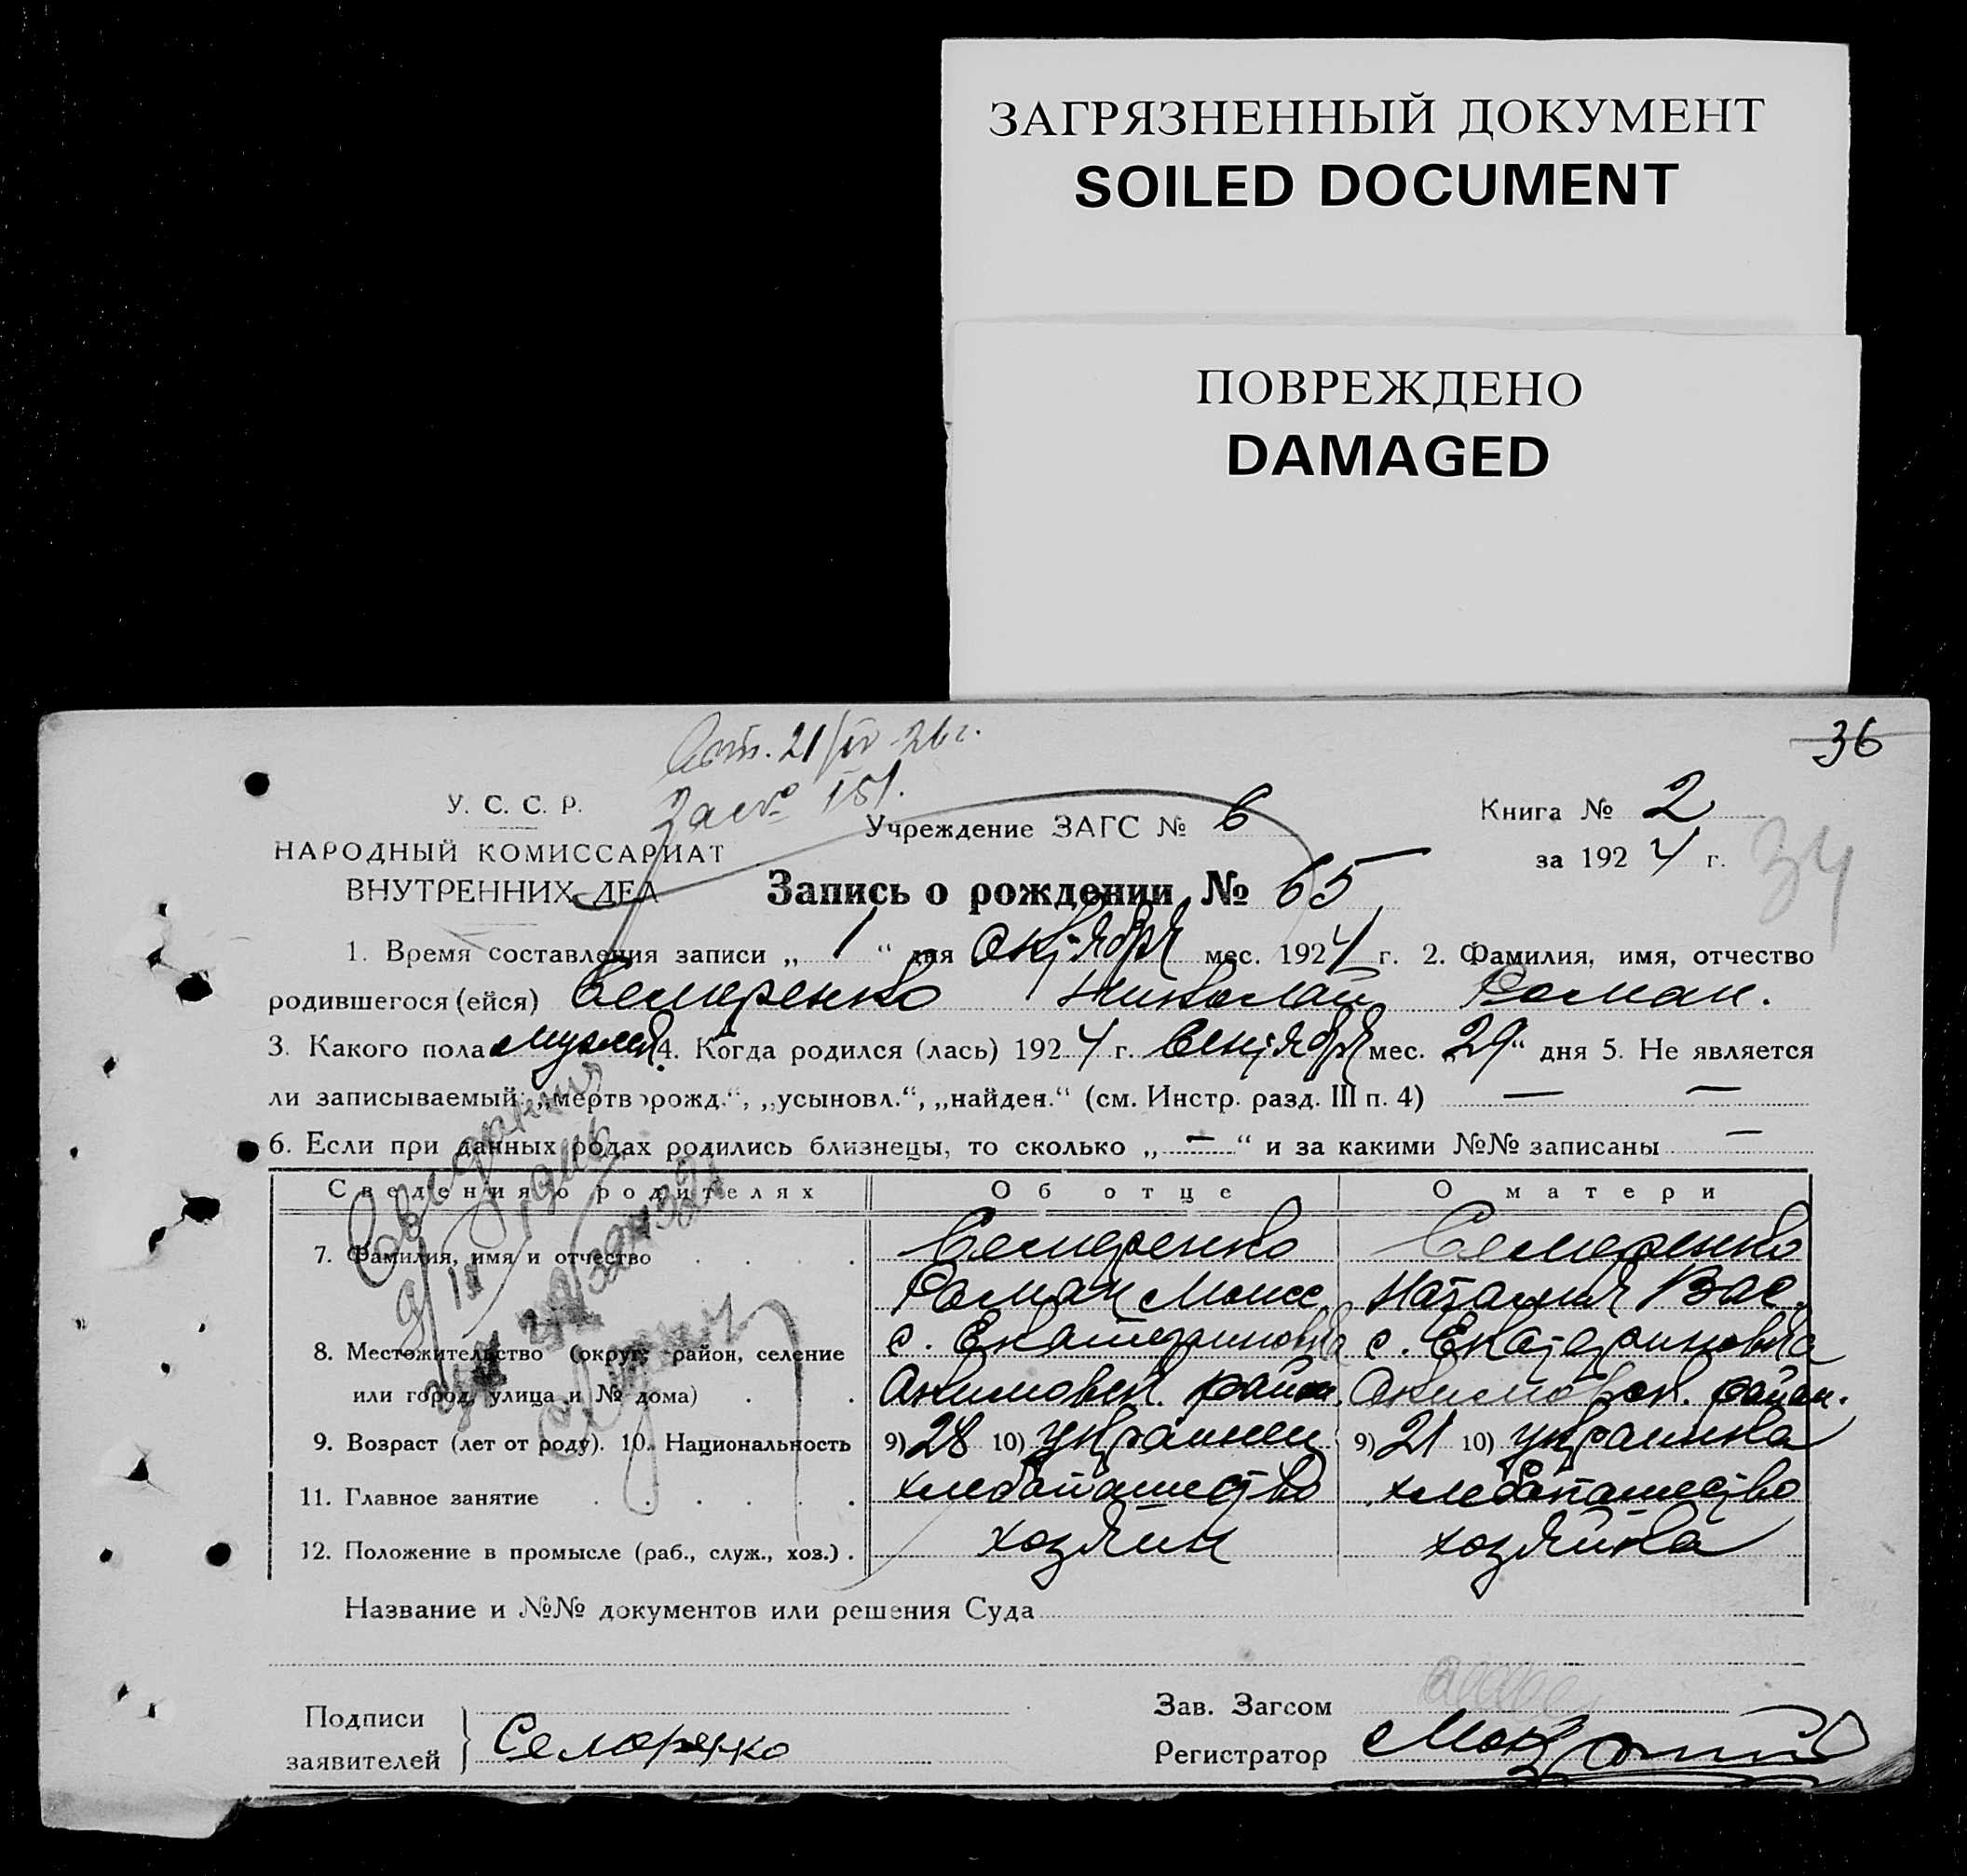 ЗАГРЯЗНЕННЫЙ ДОКУМЕНТ
SOILED DOCUMENT
ПОВРЕЖДЕНО
DAMAGED
36
21/IV-26 г.
за № 151.
У. С. С. Р.
НАРОДНЫЙ КОМИССАРИАТ
ВНУТРЕННИХ ДЕЛ
Учреждение ЗАГС № 6
Книга № 2
за 1924 г.
34
Запись о рождении № 65
1. Время составления записи „ 1 “ дня Октября мес. 1924 г. 2. Фамилия, имя, отчество
родившегося (ейся) Семеренко Николай Роман.
3. Какого пола мужск. 4. Когда родился (лась) 1924 г. Сентября мес. „29“ дня 5. Не является
ли записываемый: „мертворожд.“, „усыновл.“, „найден.“ (см. Инстр. разд. III п. 4) — —
6. Если при данных родах родились близнецы, то сколько „ — “ и за какими №№ записаны —
Сведения о родителях Об отце О матери
7. Фамилия, имя и отчество Семеренко Семеренко
Роман Моисе. Наталия Вас.
8. Местожительство (округ, район, селение с. Екатериновка с. Екатериновка
или город, улица и № дома) Акимовск. район. Акимовск. район.
9. Возраст (лет от роду). 10. Национальность 9) 28 10) украинец 9) 21 10) украинка
11. Главное занятие хлебопашество хлебопашество
12. Положение в промысле (раб., служ., хоз.) хозяин хозяйка
Название и №№ документов или решения Суда
Подписи
заявителей
Семеренко
Зав. Загсом
Регистратор